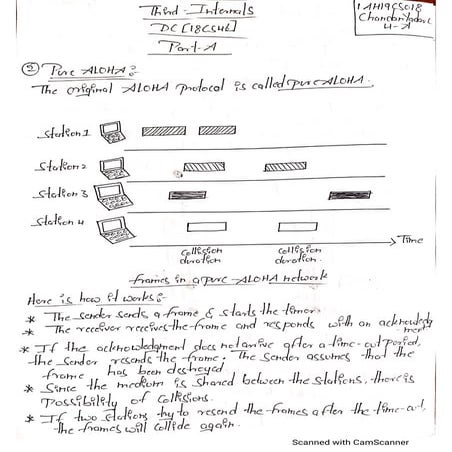 Third - Internals
DC [18CS46]
Part-A
1AH19CS018
4-A
⑤ Pure ALOHA:-
The original ALOHA protocol is called pure ALOHA.
Station 1
Station 2
Station 3
Station 4
Time
collision duration.
collision duration.
frames in a pure-ALOHA network
Here is how it works:-
* The sender sends a frame & starts the timer.
* The receiver receives the frame and responds with an acknowledgment
* If the acknowledgment does not arrive after a time-out period,
the sender resends the frame. The sender assumes that the
frame has been destroyed.
* Since the medium is shared between the stations, there is
possibility of collisions.
* If two stations try to resend the frames after the time-out,
the frames will collide again.
Scanned with CamScanner